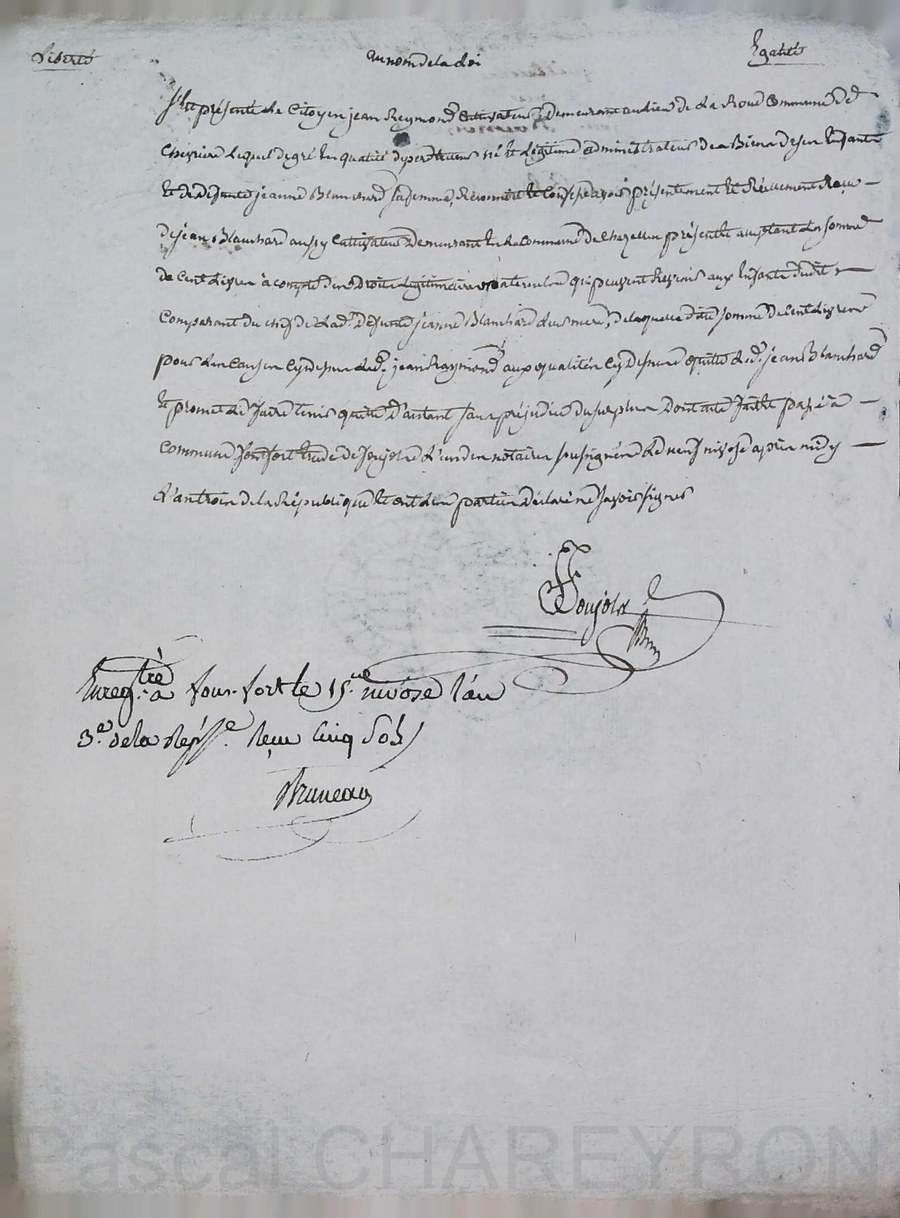 Liberté au nom de la loi Egalité
S'est présenté le Citoyen jean Reymond Cultivateur demeurant au lieu de La Roue Commune de
lequel de gré en qualité de pere et legitime administrateur de Biens de ses Enfants
et de defunte jeanne Blanchard sa femme, Reconnoit et Confesse avoir présentement et Réellement Reçu
de jean Blanchard aussy Cultivateur demeurant en la Commune de Chazelles présent et acceptant la somme
de Cent livres à compte des Droits legitimaires maternels qui peuvent Revenir aux Enfants dudit
Comparant du chef de lad. defunte jeanne Blanchard leur mere, de laquelle ditte somme de Cent livres
pour les Causes Cy dessus led. jean Raymond aux qualités Cy dessus quitte led. jean Blanchard
et promet de faire tenir quitte d'autant sans préjudice du surplus Dont acte fait et passé à
Commune fonfort Etude de Soujols l'un des notaires soussignés le neuf nivose après midy
L'an trois de la République et ont les parties déclaré ne savoir signer
Soujols
Enreg.tré à fons-fort le 15.me nivose l'an
3.e de la Rép.e Reçu Cinq Sols
Bruneau
Pascal CHAREYRON